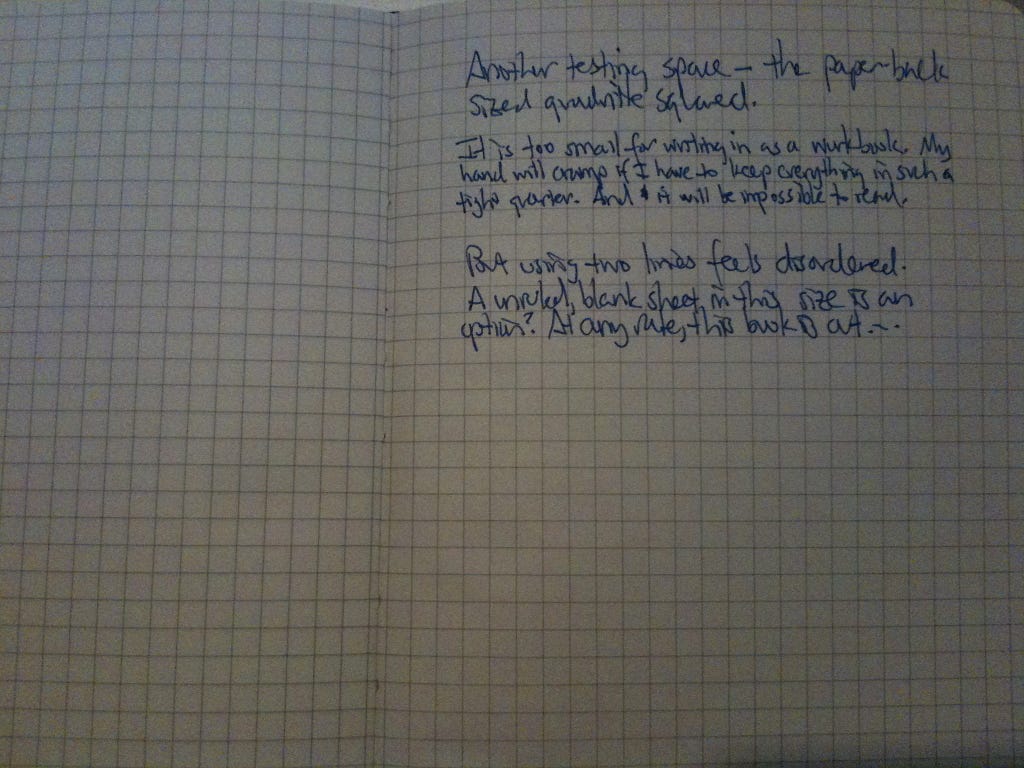 Another testing space – the paperback
sized quadrille squared.
It is too small for writing in as a workbook. My
hand will cramp if I have to keep everything in such a
tight quarter. And it will be impossible to read.
But using two lines feels disordered.
A unruled, blank sheet in this size is an
option? At any rate, this book is out...